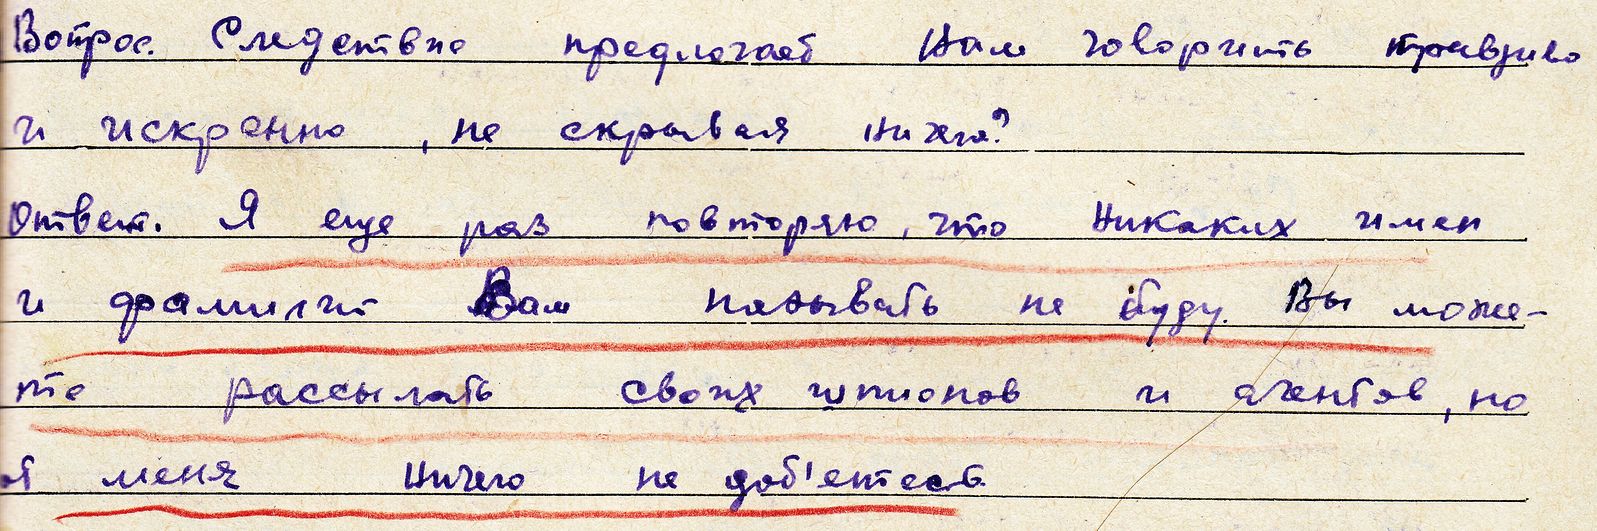 Вопрос. Следствие предлогает Вам говорить правдиво
и искренно, не скрывая ничего?
Ответ. Я еще раз повторяю, что никаких имен
и фамилий Вам называть не буду. Вы може-
те рассылать своих шпионов и агентов, но
от меня ничего не доб'етесь